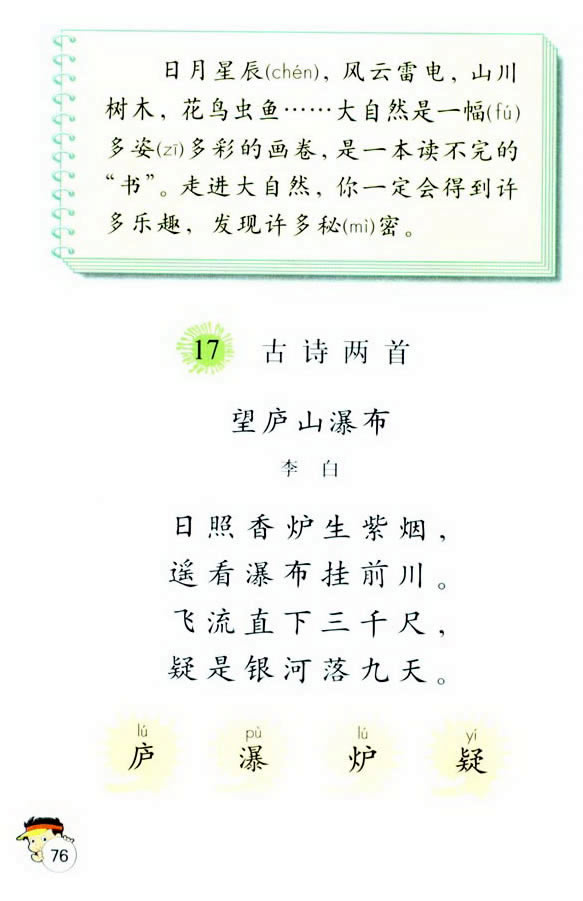 日月星辰(chén)，风云雷电，山川
树木，花鸟虫鱼……大自然是一幅(fú)
多姿(zī)多彩的画卷，是一本读不完的
“书”。走进大自然，你一定会得到许
多乐趣，发现许多秘(mì)密。
17 古诗两首
望庐山瀑布
李 白
日照香炉生紫烟，
遥看瀑布挂前川。
飞流直下三千尺，
疑是银河落九天。
lú pù lú yí
庐 瀑 炉 疑
76